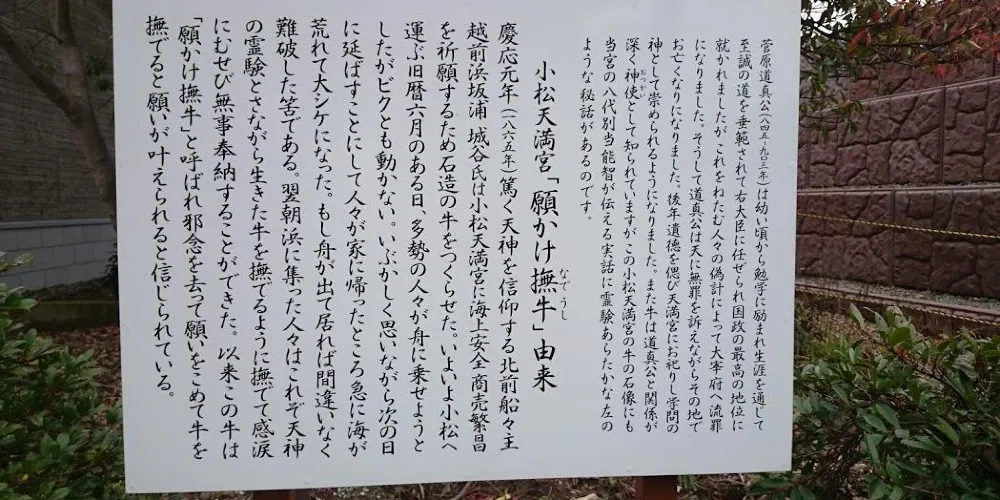 菅原道真公(八四五-九〇三年)は幼い頃から勉学に励まれ生涯を通して
至誠の道を垂範されて右大臣に任ぜられ国政の最高の地位に
就かれましたが これをねたむ人々の偽計によって大宰府へ流罪
になりました。そうして道真公は天に無罪を訴えながらその地で
お亡くなりになりました。後年遺徳を偲び天満宮にお祀りし学問の
神として崇められるようになりました。また牛は道真公と関係が
深く神使として知られていますがこの小松天満宮の牛の石像にも
当宮の八代別当能智が伝える実話に霊験あらたかな左の
ような秘話があるのです。
小松天満宮「願かけ撫牛」由来
なでうし
慶応元年(一八六五年)篤く天神を信仰する北前船々主
越前浜坂浦 城谷氏は小松天満宮に海上安全商売繁昌
を祈願するため石造の牛をつくらせた。いよいよ小松へ
運ぶ旧暦六月のある日、多勢の人々が舟に乗せようと
したがビクとも動かない。いぶかしく思いながら次の日
に延ばすことにして人々が家に帰ったところ急に海が
荒れて大シケになった。もし舟が出て居れば間違いなく
難破した筈である。翌朝浜に集った人々はこれぞ天神
の霊験とさながら生きた牛を撫でるように撫でて感涙
にむせび無事奉納することができた。以来この牛は
「願かけ撫牛」と呼ばれ邪念を去って願いをこめて牛を
撫でると願いが叶えられると信じられている。